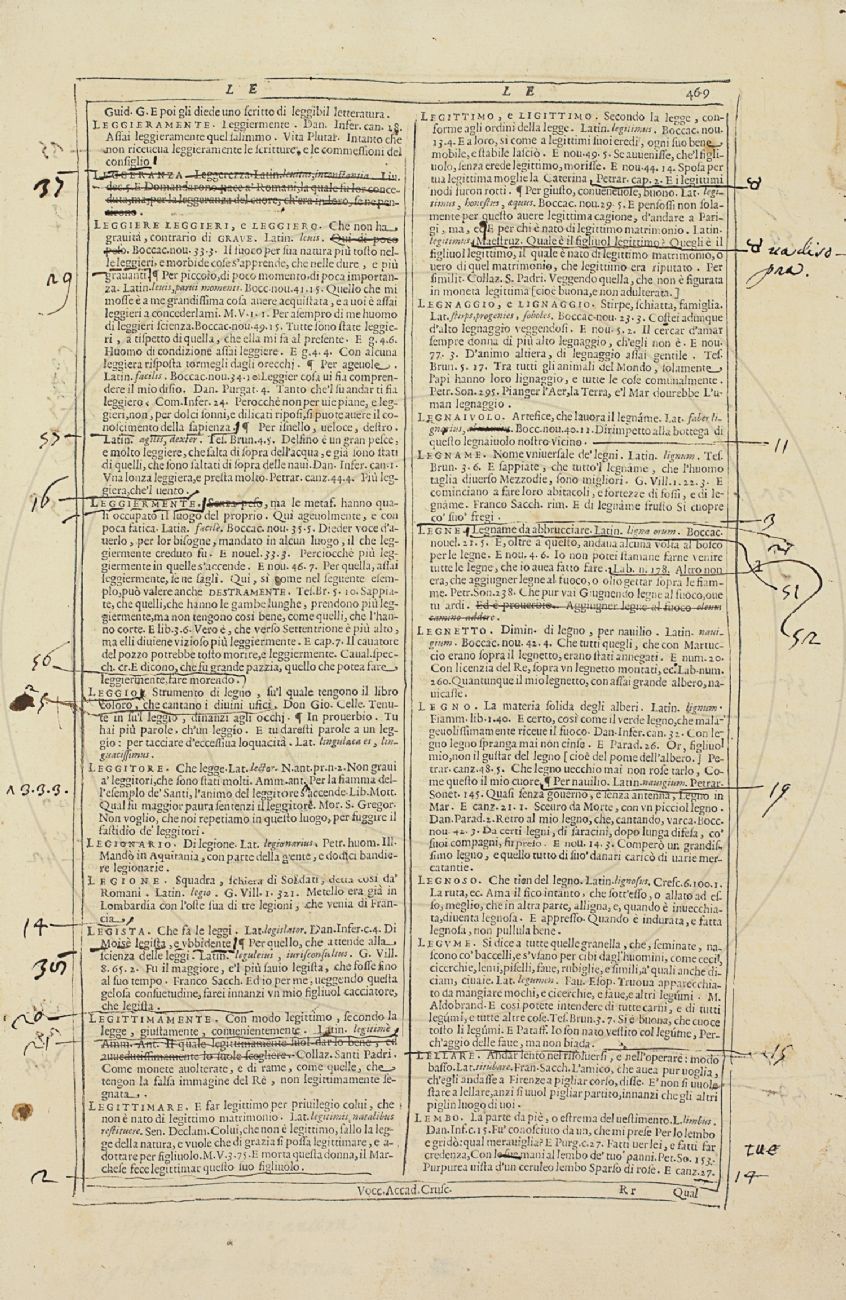 LE LE 469
Guid. G. E poi gli diede uno scritto di leggibil letteratura.
LEGGIERAMENTE. Leggiermente. Dan. Infer. can. 18.
Assai leggieramente quel salimmo. Vita Plutar. Intanto che
non riceueua leggieramente le scritture, e le commessioni del
consiglio
LEGGERANZA. Leggerezza. Latin.
dec. 5. E Domandarono pace a' Romani, la quale fu lor conce-
duta, ma, per la leggeranza del cuore, ch'era in loro, se ne pen-
35
LEGGIERE LEGGIERI, e LEGGIERO. Che non ha
grauità, contrario di GRAVE. Latin. leuis. Qui di poco
peso. Boccac. nou. 33. 3. Il fuoco per sua natura più tosto nel-
le leggieri, e morbide cose s'apprende, che nelle dure, e più
grauanti ¶ Per piccolo, di poco momento, di poca importan-
za. Latin. leuis, parui momenti. Bocc. nou. 41. 15. Quello che mi
29
mosse è a me grandissima cosa auere acquistata, e a uoi è assai
leggieri a concederlami. M. V. 1. 1. Per asempro di me huomo
di leggieri scienza. Boccac. nou. 49. 15. Tutte sono state leggie-
ri, a rispetto di quella, che ella mi fa al presente. E g. 4. 6.
Huomo di condizione assai leggiere. E g. 4. 4. Con alcuna
leggiera risposta tormegli dagli orecchi. ¶ Per ageuole.
Latin. facilis. Boccac. nou. 34. 10. Leggier cosa ui fia compren-
dere il mio disio. Dan. Purgat. 4. Tanto che'l su andar ti fia
leggiero. Com. Infer. 24. Perocchè non per uie piane, e leg-
gieri, non, per dolci sonni, e dilicati riposi, si puote auere il co-
noscimento della sapienza. ¶ Per isnello, ueloce, destro.
Latin. agilis, dexter. Tes. Brun. 4. 5. Delfino è un gran pesce,
e molto leggiere, che salta di sopra dell'acqua, e già sono stati
di quelli, che sono saltati di sopra delle naui. Dan. Infer. can. 1.
Vna lonza leggiera, e presta molto. Petrar. canz. 44. 4. Più leg-
giera, che'l uento.
16
LEGGIERMENTE. Senza peso, ma le metaf. hanno qua-
si occupato il luogo del proprio. Qui ageuolmente, e con
poca fatica. Latin. facile. Boccac. nou. 35. 5. Dieder voce d'a-
uerlo, per lor bisogne, mandato in alcun luogo, il che leg-
giermente creduto fu. E nouel. 33. 3. Perciocchè più leg-
giermente in quelle s'accende. E nou. 46. 7. Per quella, assai
leggiermente, se ne saglì. Qui, sì come nel seguente esem-
plo, può valere anche DESTRAMENTE. Tes. Br. 5. 10. Sappia-
te, che quelli, che hanno le gambe lunghe, prendono più leg-
giermente, ma non tengono così bene, come quelli, che l'han-
no corte. E lib. 3. 6. Vero è, che verso Settentrione è più alto,
ma elli diuiene vizioso più leggiermente. E cap. 7. Il cauatore
del pozzo potrebbe tosto morire, e leggiermente. Caual. spec-
ch. cr. E dicono, che fu grande pazzia, quello che potea fare
leggiermente, fare morendo.
56
LEGGIO. Strumento di legno, su'l quale tengono il libro
coloro, che cantano i diuini ufici. Don Gio. Celle. Tenu-
te in su'l leggio, dinanzi agli occhj. ¶ In prouerbio. Tu
hai più parole, ch'un leggio. E tu daresti parole a un leg-
gio: per tacciare d'eccessiua loquacità. Lat. lingulaca es, lin-
guacissimus.
LEGGITORE. Che legge. Lat. lector. N. ant. pr. n. 2. Non graui
a' leggitori, che sono stati molti. Amm. ant. Per la fiamma del-
l'esemplo de' Santi, l'animo del leggitore s'accende. Lib. Mott.
Qual fu maggior paura sentenzi il leggitore. Mor. S. Gregor.
Non voglio, che noi repetiamo in questo luogo, per fuggire il
fastidio de' leggitori.
LEGIONARIO. Di legione. Lat. legionarius. Petr. huom. Ill.
Mandò in Aquitania, con parte della gente, e dodici bandie-
re legionarie.
LEGIONE. Squadra, schiera di Soldati, detta così da'
Romani. Latin. legio. G. Vill. 1. 32. 1. Metello era già in
Lombardia con l'oste sua di tre legioni, che venia di Fran-
cia.
14
LEGISTA. Che fa le leggi. Lat. legislator. Dan. Infer. c. 4. Di
Moisè legista, e vbbidente ¶ Per quello, che attende alla
scienza delle leggi. Latin. leguleius, iurisconsultus. G. Vill.
8. 65. 2. Fu il maggiore, e'l più sauio legista, che fosse fino
al suo tempo. Franco Sacch. Ed io per me, ueggendo questa
gelosa consuetudine, farei innanzi vn mio figliuol cacciatore,
che legista.
20
LEGITTIMAMENTE. Con modo legittimo, secondo la
legge, giustamente, conuenientemente. Latin. legitimè
Amm. Ant. Il quale legittimamente suol dar lo bene, ed
auuedutissimamente lo suole scegliere. Collaz. Santi Padri.
Come monete auolterate, e di rame, come quelle, che
tengon la falsa immagine del Re, non legittimamente se-
gnata.
LEGITTIMARE. E far legittimo per priuilegio colui, che
non è nato di legittimo matrimonio. Lat. legitimus, natalibus
restituere. Sen. Declam. Colui, che non è legittimo, fallo la leg-
ge della natura, e vuole che di grazia si possa legittimare, e a-
dottare per figliuolo. M. V. 3. 75. E morta questa donna, il Mar-
chese fece legittimar questo suo figliuolo.
2
LEGITTIMO, e LIGITTIMO. Secondo la legge, con-
forme agli ordini della legge. Latin. legitimus. Boccac. nou.
13. 4. E a loro, sì come a legittimi suoi eredi, ogni suo bene
mobile, e stabile lasciò. E nou. 49. 5. Se auuenisse, che'l figli-
uolo, senza erede legittimo, morisse. E nou. 44. 14. Sposa per
tua legittima moglie la Caterina, Petrar. cap. 2. E i legitimi
nodi furon rotti. ¶ Per giusto, conueneuole, buono. Lat. legi-
timus, honestus, aequus. Boccac. nou. 29. 5. E pensossi non sola-
mente per questo auere legittima cagione, d'andare a Pari-
gi, ma, ec. E per chi è nato di legittimo matrimonio. Latin.
legitimus Maestruz. Quale è il figliuol legittimo? Quegli è il
figliuol legittimo, il quale è nato di legittimo matrimonio, o
uero di quel matrimonio, che legittimo era riputato. Per
similit. Collaz. S. Padri. Veggendo quella, che non è figurata
in moneta legittima [cioè buona, e non adulterata.]
ua di so-
pra.
LEGNAGGIO, e LIGNAGGIO. Stirpe, schiatta, famiglia.
Lat. stirps, progenies, soboles. Boccac. nou. 23. 3. Costei adunque
d'alto legnaggio veggendosi. E nou. 5. 2. Il cercar d'amar
sempre donna di più alto legnaggio, ch'egli non è. E nou.
77. 3. D'animo altiera, di legnaggio assai gentile. Tes.
Brun. 5. 17. Tra tutti gli animali del Mondo, solamente
l'api hanno loro lignaggio, e tutte le cose comunalmente.
Petr. Son. 295. Pianger l'Aer, la Terra, e'l Mar dourebbe L'u-
man legnaggio.
LEGNAIVOLO. Artefice, che lauora il legname. Lat. faber li-
gnarius, Bocc. nou. 40. 11. Dirimpetto alla bottega di
questo legnaiuolo nostro vicino.
11
LEGNAME. Nome vniuersale de' legni. Latin. lignum. Tes.
Brun. 3. 6. E sappiate, che tutto'l legname, che l'huomo
taglia diuerso Mezzodie, sono migliori. G. Vill. 1. 22. 3. E
cominciano a fare loro abitacoli, e fortezze di fossi, e di le-
gname. Franco Sacch. rim. E di legname frusto Si cuopre
co' suo' fregi.
3
LEGNE Legname da abbrucciare. Latin. ligna orum. Boccac.
nouel. 21. 5. E, oltre a questo, andaua alcuna volta al bosco
per le legne. E nou. 4. 6. Io non potei stamane farne venire
tutte le legne, che io auea fatto fare. Lab. n. 178. Altro non
era, che aggiugner legne al fuoco, o olio gettar sopra le fiam-
me. Petr. Son. 238. Che pur vai Giugnendo legne al fuoco, oue
tu ardi. Ed è prouerbio. Aggiugner legne al fuoco oleum
camino addere.
51
52
LEGNETTO. Dimin. di legno, per nauilio. Latin. naui-
gium. Boccac. nou. 42. 4. Che tutti quegli, che con Martuc-
cio erano sopra il legnetto, erano stati annegati. E num. 20.
Con licenzia del Re, sopra vn legnetto montati, ec. Lab. num.
260. Quantunque il mio legnetto, con assai grande albero, na-
uicasse.
LEGNO. La materia solida degli alberi. Latin. lignum.
Fiamm. lib. 1. 40. E certo, così come il verde legno, che mala-
geuolissimamente riceue il fuoco. Dan. Infer. can. 32. Con le-
gno legno spranga mai non cinse. E Parad. 26. Or, figliuol
mio, non il gustar del legno [cioè del pome dell'albero.] Pe-
trar. canz. 48. 5. Che legno uecchio mai non rose tarlo, Co-
me questo il mio cuore ¶ Per nauilio. Latin. nauigium. Petrar.
Sonet. 145. Quasi senza gouerno, e senza antenna, Legno in
Mar. E canz. 21. 1. Sceuro da Morte, con vn picciol legno.
Dan. Parad. 2. Retro al mio legno, che, cantando, varca. Bocc.
nou. 42. 3. Da certi legni, di saracini, dopo lunga difesa, co'
suoi compagni, fu preso. E nou. 14. 3. Comperò un grandis-
simo legno, e quello tutto di suo' danari caricò di uarie mer-
catantie.
19
LEGNOSO. Che tien del legno. Latin. lignosus. Cresc. 6. 100. 1.
La ruta, ec. Ama il fico intanto, che sott'esso, o allato ad es-
so, meglio, che in altra parte, alligna, e, quando è inuecchia-
ta, diuenta legnosa. E appresso. Quando è indurata, e fatta
legnosa, non pullula bene.
LEGVME. Si dice a tutte quelle granella, che, seminate, na-
scono co' baccelli, e s'vsano per cibi dagl'huomini, come ceci,
cicerchie, lenti, piselli, faue, rubiglie, e simili, a' quali anche di-
ciam, ciuaie. Lat. legumen. Fau. Esop. Truoua apparecchia-
to da mangiare mochi, e cicerchie, e faue, e altri legumi. M.
Aldobrand. E così potete intendere di tutte carni, e di tutti
legúmi, e tutte altre cose. Tes. Brun. 3. 7. Sì è Buona, che cuoce
tosto li legúmi. E Pataff. Io son nato vestito col legúme, Per-
ch'aggio delle faue, ma non biada.
LELLARE. Andar lento nel risoluersi, e nell'operare: modo
basso. Lat. titubare. Fran. Sacch. L'amico, che auea pur uoglia,
ch'egli andasse a Firenze a pigliar corso, disse. E' non si uuole
stare a lellare, anzi si uuol pigliar partito, innanzi che gli altri
piglin luogo di uoi.
15
LEMBO. La parte da piè, o estrema del uestimento. L. limbus.
Dan. Inf. c. 15. Fu' conosciuto da un, che mi prese Per lo lembo
e gridò: qual marauiglia? E Purg. c. 27. Fatti uer lei, e fatti far
credenza, Con le tue mani al lembo de' tuo' panni. Pet. So. 153.
Purpurea uista d'un ceruleo lembo Sparso di rose. E canz. 27.
tue
14
Vocc. Accad. Crusc. Rr Qual